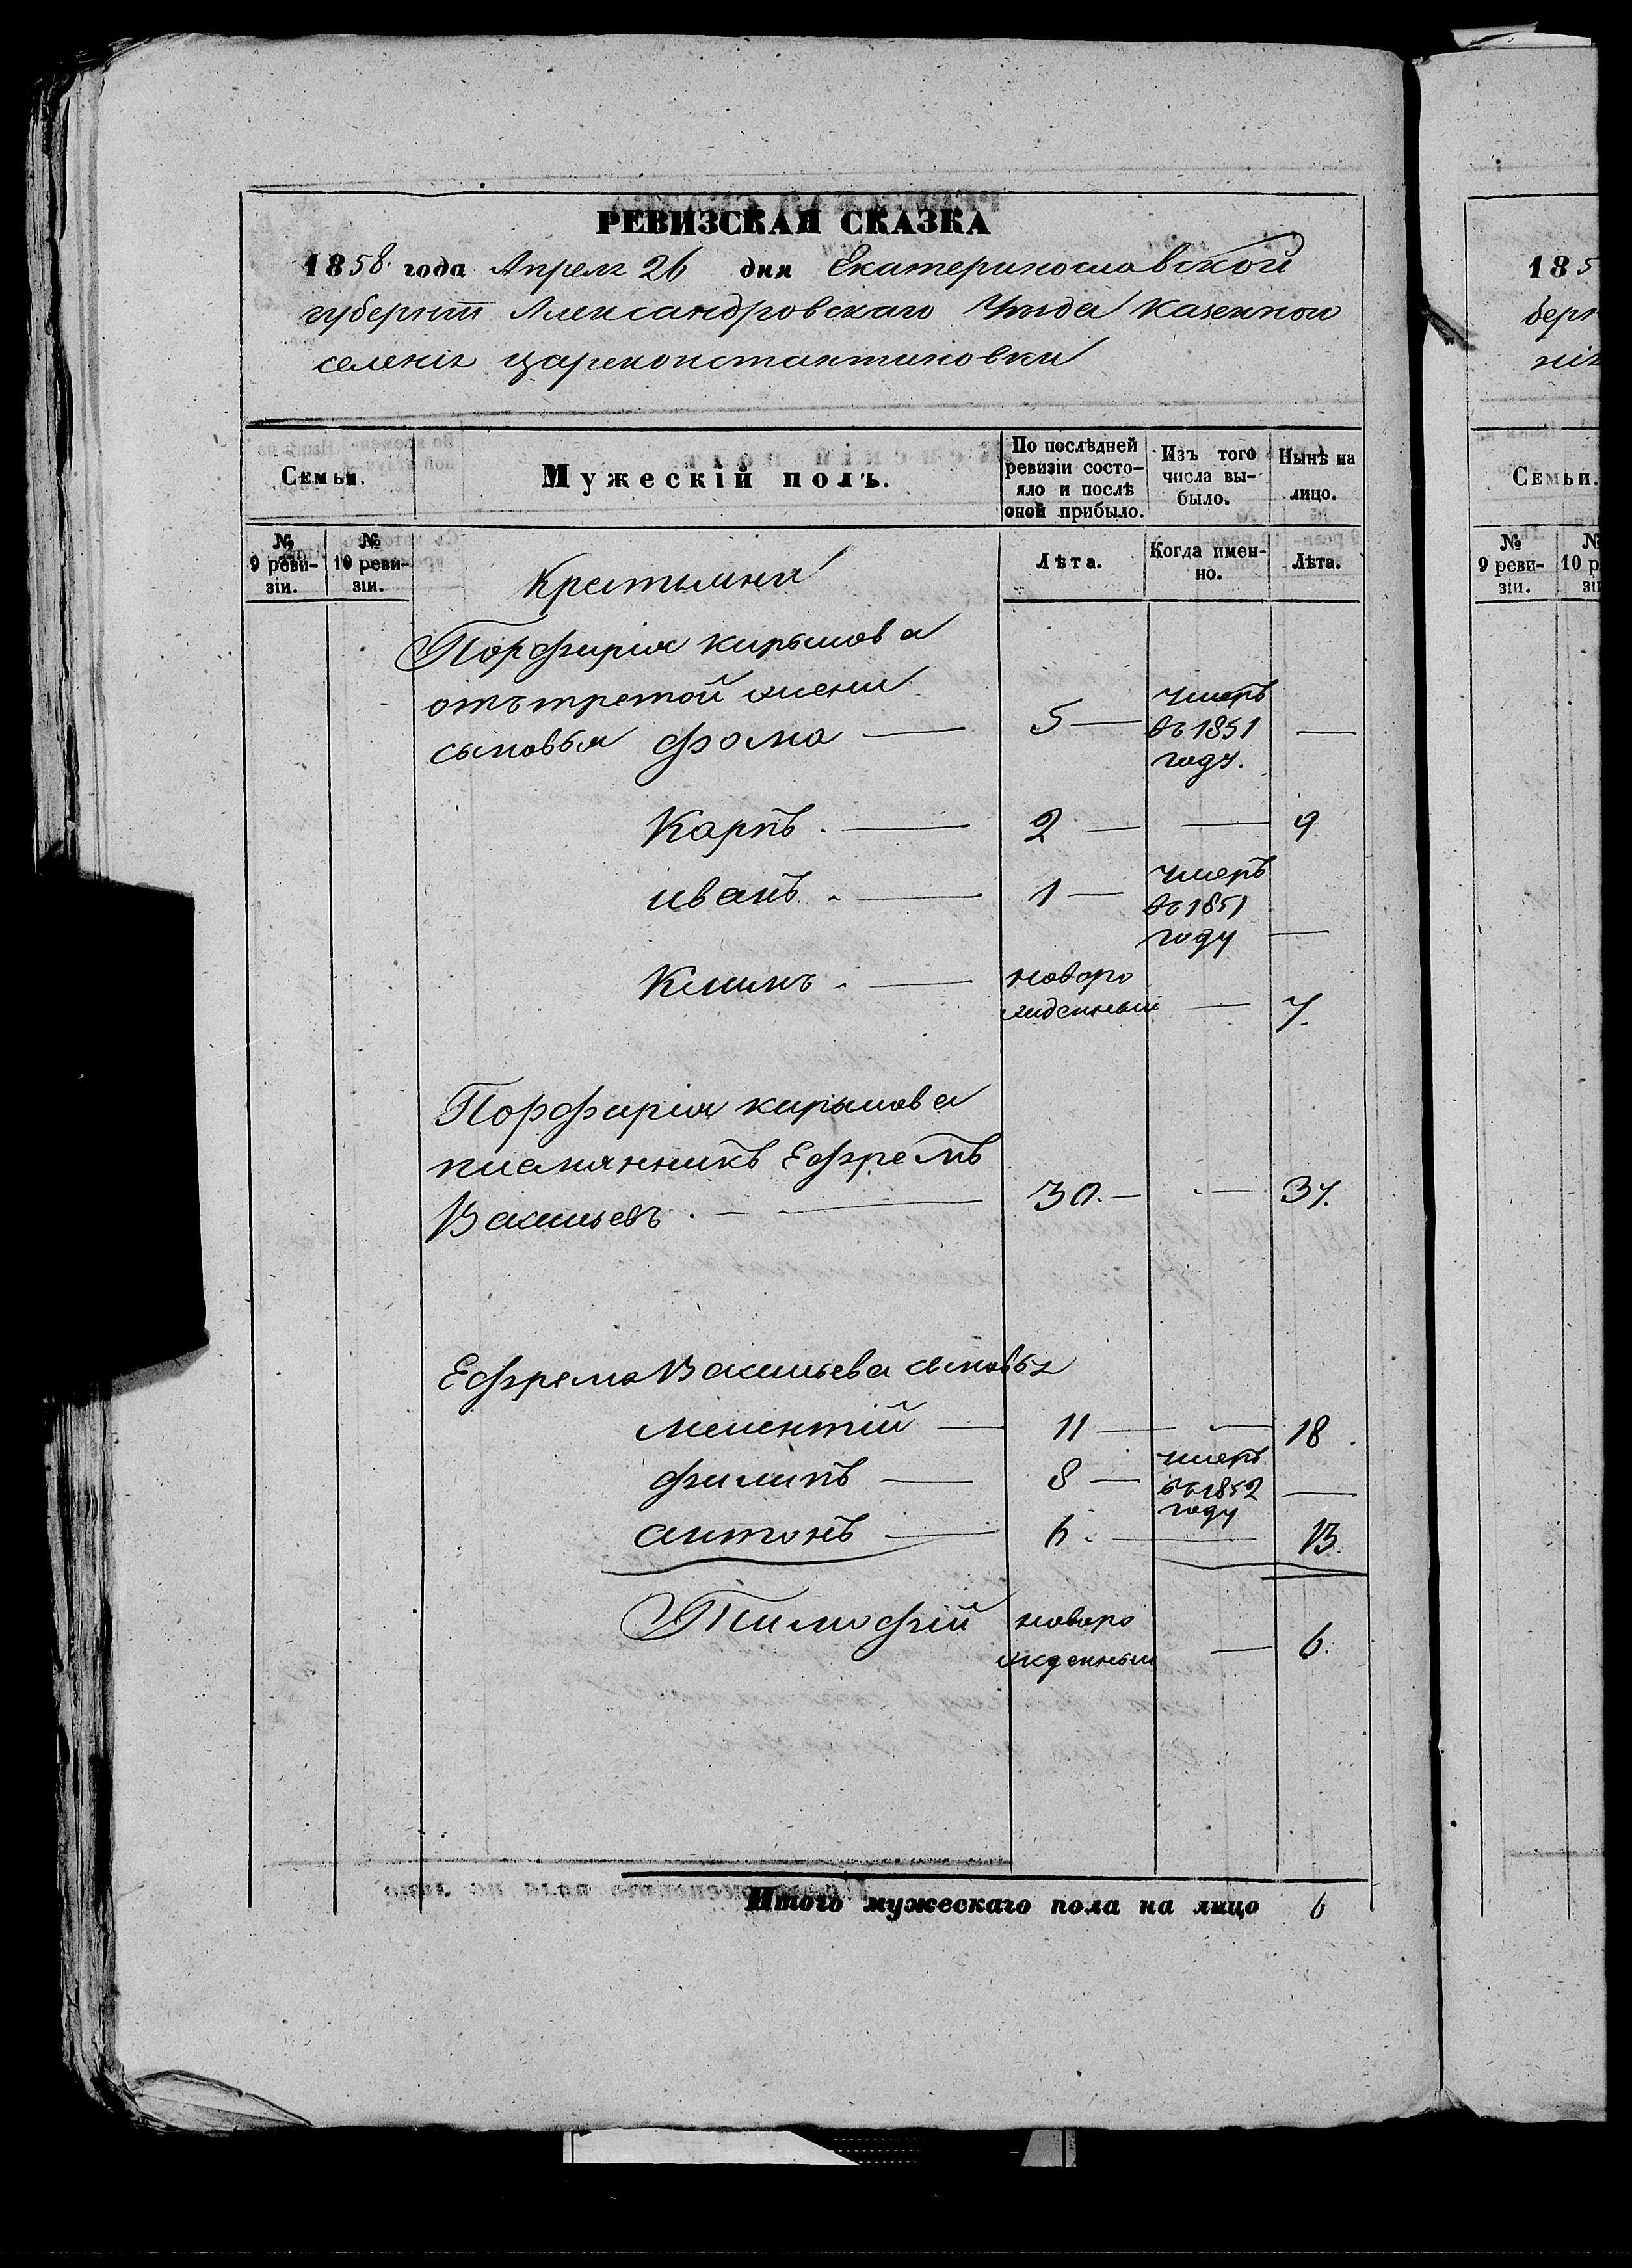 РЕВИЗСКАЯ СКАЗКА
1858. года Апреля 26 дня Екатеринославской
губерніи Александровскаго Уѣзда Казенной
селенія Цареконстантиновки
Семьи.
Мужескій полъ.
По послѣдней
ревизіи состо-
яло и послѣ
оной прибыло.
Изъ того
числа вы-
было.
Нынѣ на
лицо.
№
9 реви-
зіи.
№
10 реви-
зіи.
Крестьяни
Лѣта.
Когда имен-
но.
Лѣта.
Порфирія кирылова
отъ третой жени
сыновья фома — 5 — умеръ въ 1851 году. —
Карпъ. — 2 — — 9
иванъ. — 1 — умеръ въ 1851 году —
Климъ. — новоро
жденный — 7.
Порфирія кирылова
племянникъ Ефремъ
Васильевъ. — 30. — — 37.
Ефрема Васильева сыновья
мелентій — 11 — — 18.
филипъ — 8 — умеръ въ 1852 году —
антонъ — 6. — 13.
Тимофій новоро
жденный — 6.
Итого мужескаго пола на лицо 6
185
берн
нія
Семьи.
№
9 реви-
зіи.
№
10 р
зі